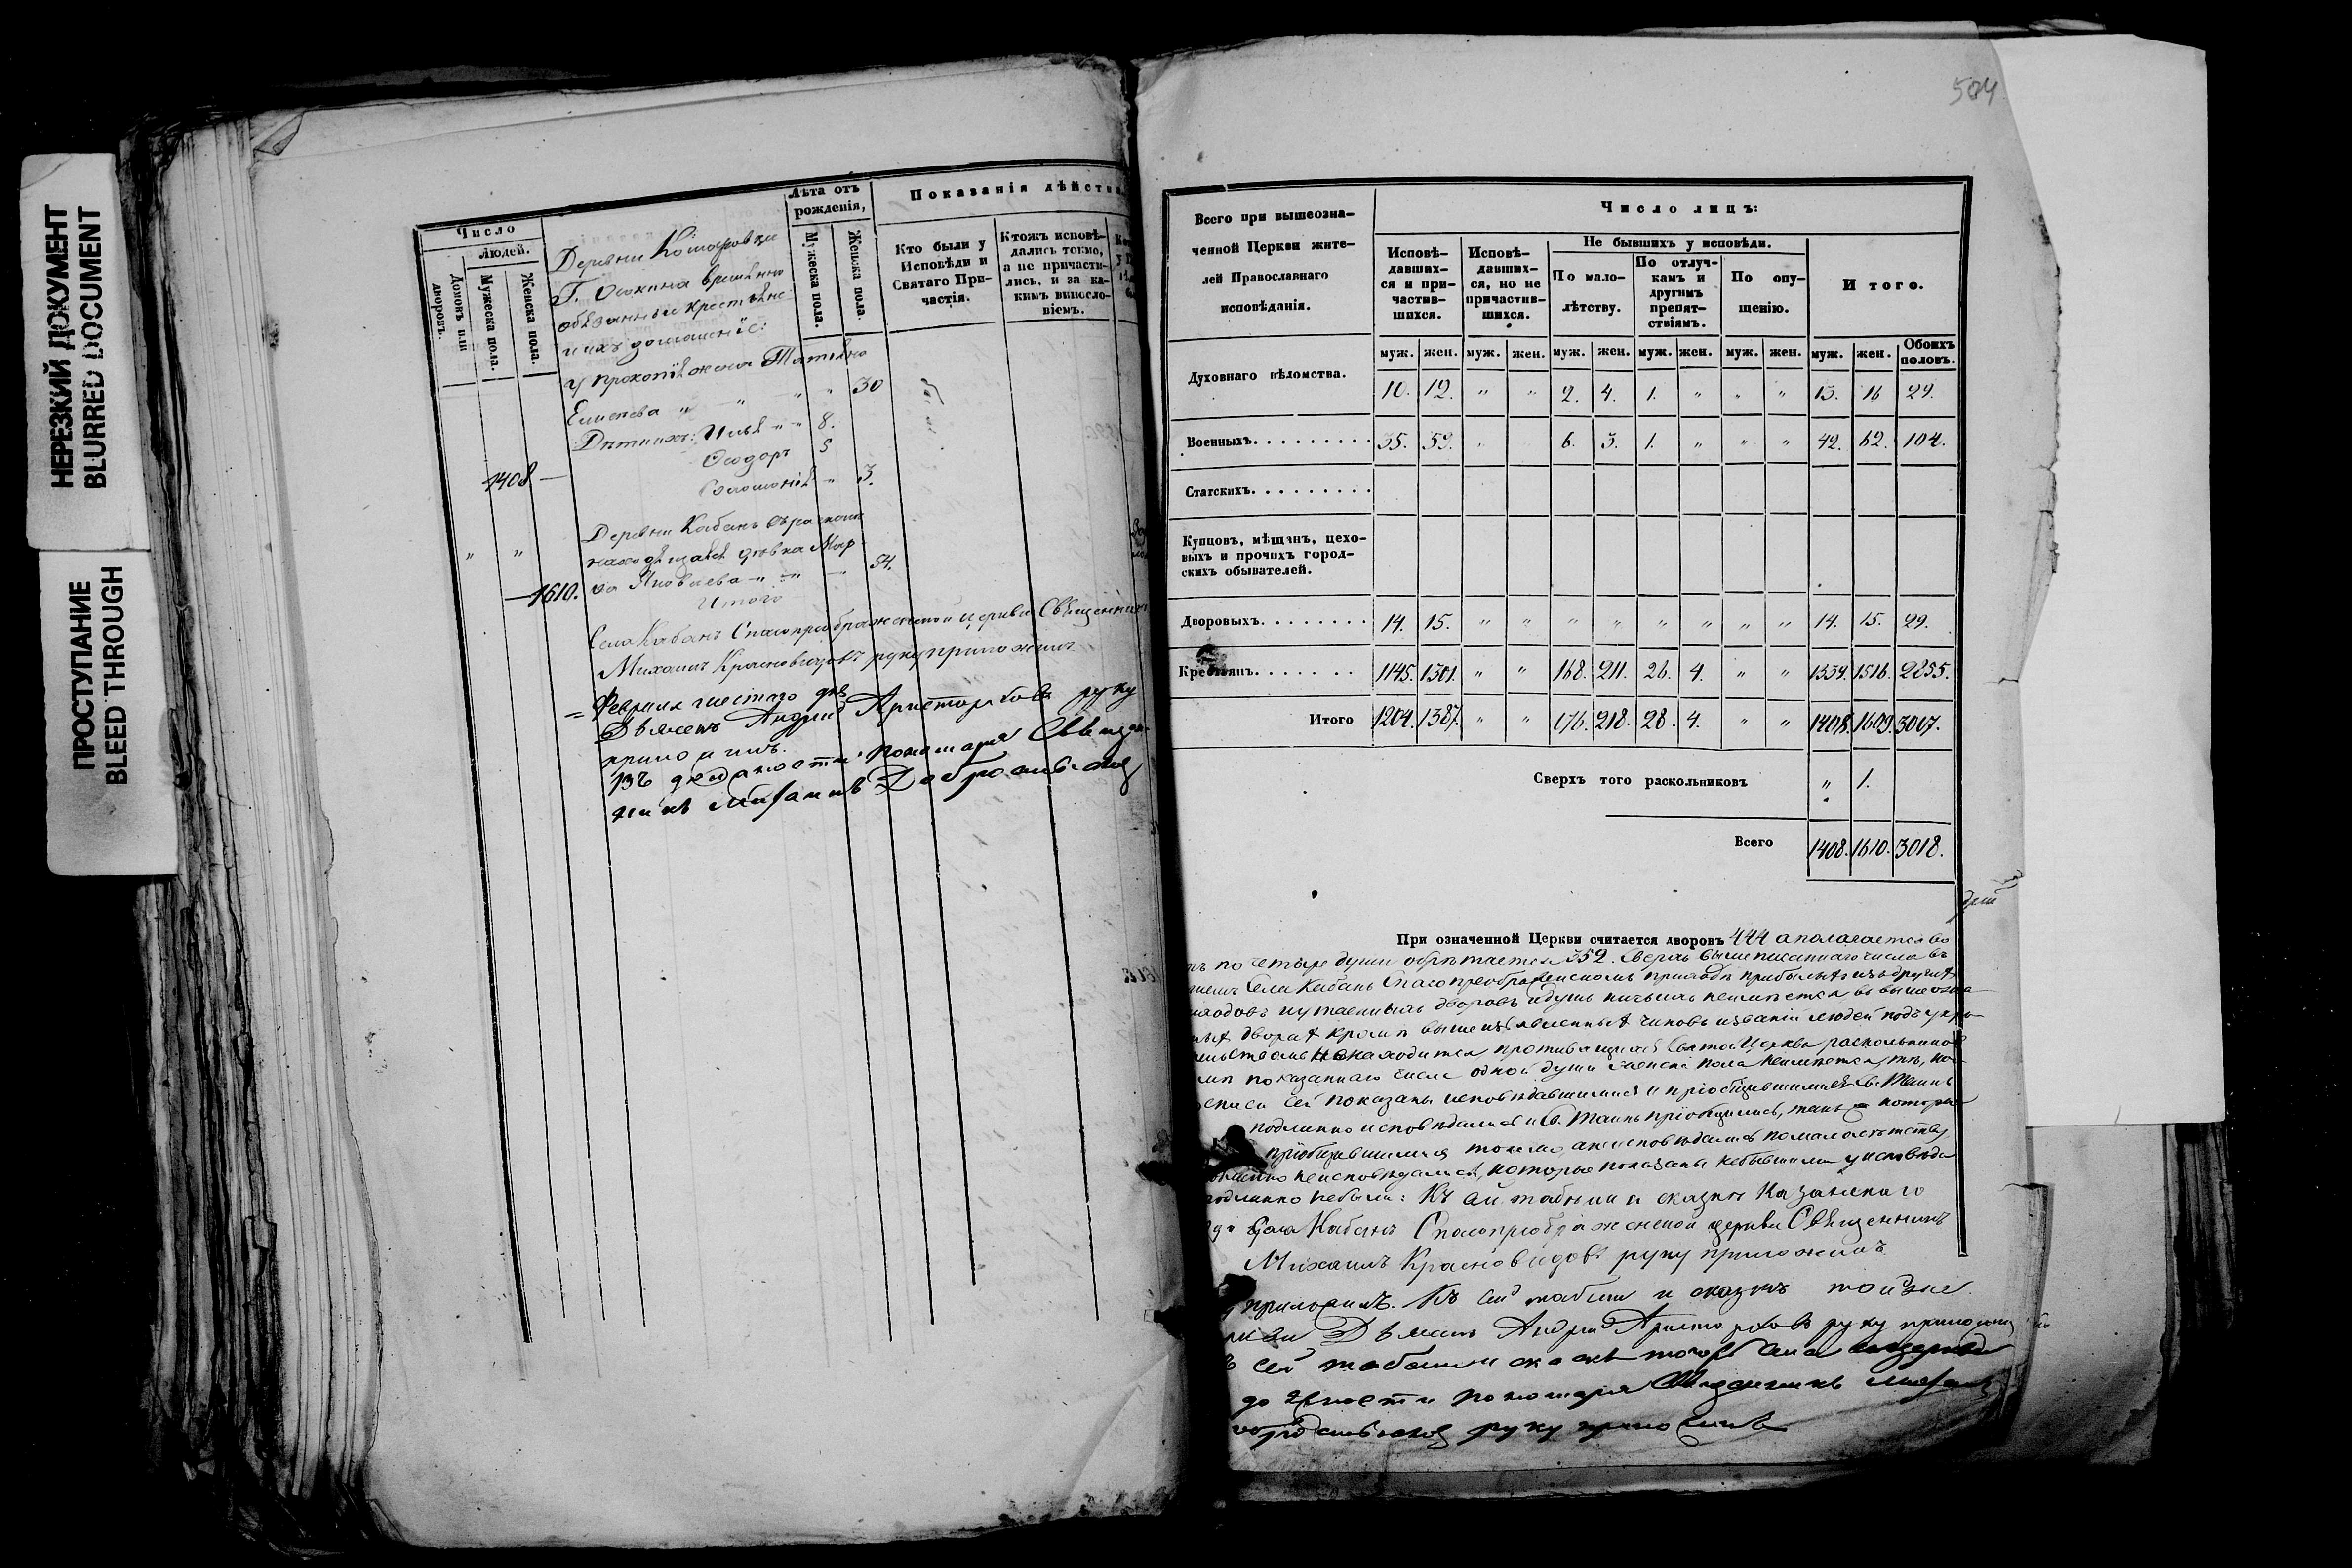 НЕРЕЗКИЙ ДОКУМЕНТ
BLURRED DOCUMENT
ПРОСТУПАНИЕ
BLEED THROUGH
Число
Людей.
Домовъ или дворовъ.
Мужеска пола.
Женска пола.
Лѣта отъ рожденія,
Мужеска пола.
Женска пола.
Показанія дѣйств
Кто были у Исповѣди и Святаго Причастія.
Ктожъ исповѣдались токмо, а не причастились, и за какимъ винословіемъ.
Деревни
Г. Осокина временно
обязанныи крестьяне
и ихъ домашніе:
У Прокопія жена Татьяна
30
Дѣти ихъ: Илья " " 8.
Ѳеодоръ 5
1408 — 3.
Деревни Кабанъ
" " дѣвка Мар-
—1610. Яковлева " " 54.
Итого
Села Кабанъ Спасопреображенской церкви Священникъ
Михаилъ Красновидовъ руку приложилъ
= Февраля шестаго дня
Дьяконъ Андрей Аристарховъ руку
приложилъ.
Въ должности пономаря
Михаилъ
504
Всего при вышеозначенной Церкви жителей Православнаго исповѣданія.
Число лицъ:
Исповѣдавшихся и причастившихся.
Исповѣдавшихся, но не причастившихся.
Не бывшихъ у исповѣди.
По малолѣтству.
По отлучкамъ и другимъ препятствіямъ.
По опущенію.
Итого.
муж. жен. муж. жен. муж. жен. муж. жен. муж. жен. муж. жен. Обоихъ половъ.
Духовнаго вѣдомства. 10. 12. " " 2. 4. 1. " " " 13. 16 29.
Военныхъ. 35. 59. " 6. 3. 1. " " " 42. 62. 104.
Статскихъ.
Купцовъ, мѣщанъ, цеховыхъ и прочихъ городскихъ обывателей.
Дворовыхъ. 14. 15. " " " " " " " " 14. 15. 29.
Крестьянъ. 1145. 1301. " " 168. 211. 26. 4. " " 1339. 1516. 2855.
Итого 1204. 1387. " " 176. 218. 28. 4. " " 1408. 1609. 3017.
Сверхъ того раскольниковъ " 1.
Всего 1408. 1610. 3018.
При означенной Церкви считается дворовъ 444 а полагается во
по четыре души обрѣтается 352. Сверхъ вышеписаннаго числа въ
Села Кабанъ Спасопреображенскомъ приходѣ прибылыхъ изъ другихъ
приходовъ и утаенныхъ дворовъ и душъ
дворахъ кромѣ вышеизъявленныхъ чиновъ и званій людей подъ
не находится противящихся Святой Церкви раскольниковъ
показаннаго числа одной души женска пола неимѣется, тѣ, кои
сей показаны исповѣдавшимися и пріобщившимися Св. Таинъ
подлинно исповѣдались и Св. Таинъ пріобщились, такъ и которые
пріобщившимися токмо, а не исповѣдались по малолѣтству
неисповѣдались, которые показаны небывшими у исповѣди
подлинно небыли: Къ сей табели и сказкѣ Казанскаго
Села Кабанъ Спасопреображенской церкви Священникъ
Михаилъ Красновидовъ руку приложилъ
приложилъ. Къ сей табели и сказкѣ тойже
Дьяконъ Андрей Аристарховъ руку приложилъ
сей табели и сказкѣ тогожъ села
должности пономаря
руку приложилъ